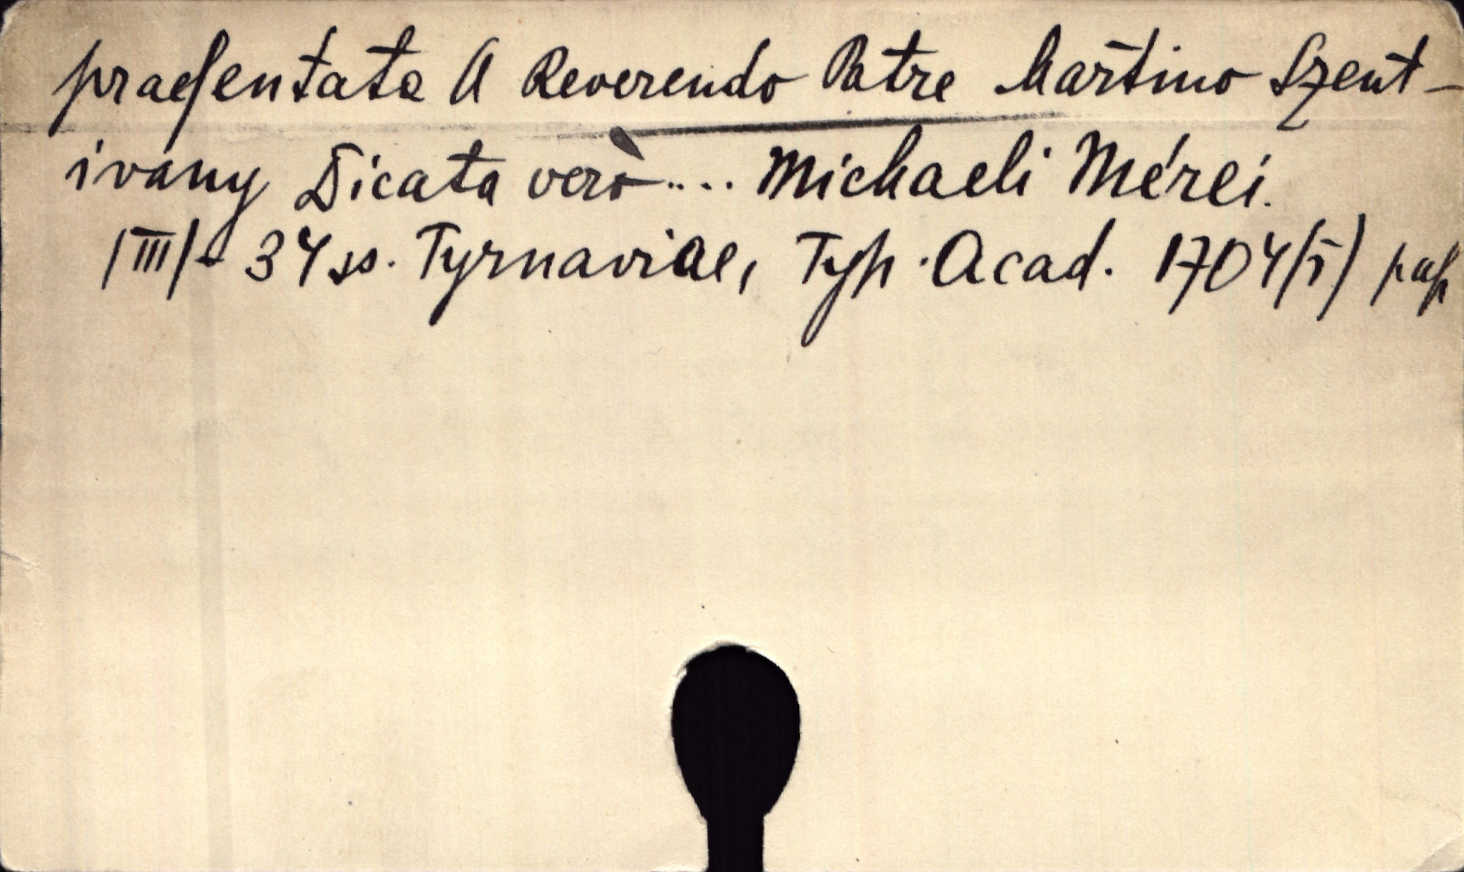 praesentata A Reverendo Patre Martino Szent-
ivány Dicata verò.... Michaeli Mérei.
/III/- 34 ss. Tyrnaviae, Typ. Acad. 1704/5) pap